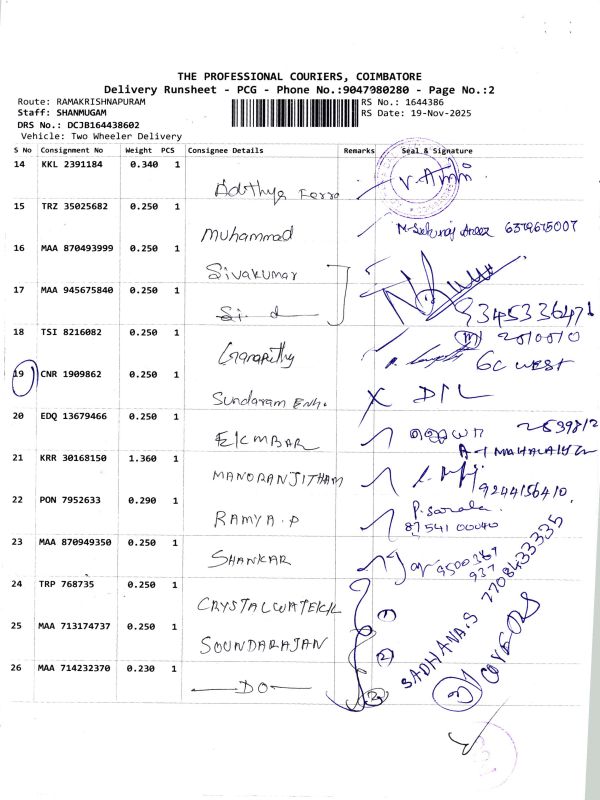 THE PROFESSIONAL COURIERS, COIMBATORE
Delivery Runsheet - PCG - Phone No.:9047080280 - Page No.:2
Route: RAMAKRISHNAPURAM RS No.: 1644386
Staff: SHANMUGAM RS Date: 19-Nov-2025
DRS No.: DCJB164438602
Vehicle: Two Wheeler Delivery
S No Consignment No Weight PCS Consignee Details Remarks Seal & Signature
14 KKL 2391184 0.340 1
Adithya Ferro
15 TRZ 35025682 0.250 1
Muhammad 6379675007
16 MAA 870493999 0.250 1
Sivakumar
17 MAA 945675840 0.250 1
9345336471
18 TSI 8216082 0.250 1
Ganapathy GC WEST
19 CNR 1909862 0.250 1
Sundaram Enh. X D/L
20 EDQ 13679466 0.250 1
21 KRR 30168150 1.360 1
MANORANJITHAM 9244156410
22 PON 7952633 0.290 1
RAMYA.P P.Sarala
87541 00040
23 MAA 870949350 0.250 1
SHANKAR 9500387
937
24 TRP 768735 0.250 1
25 MAA 713174737 0.250 1
SOUNDARAJAN
26 MAA 714232370 0.230 1
DO
SADHANA.S 7708433335
3 COVERS